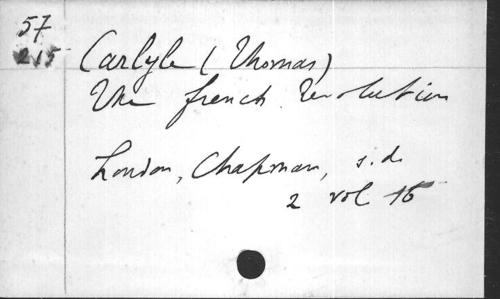 57
215
Carlyle (Thomas)
The french Revolution
London, Chapman, s.d.
2 vol 16